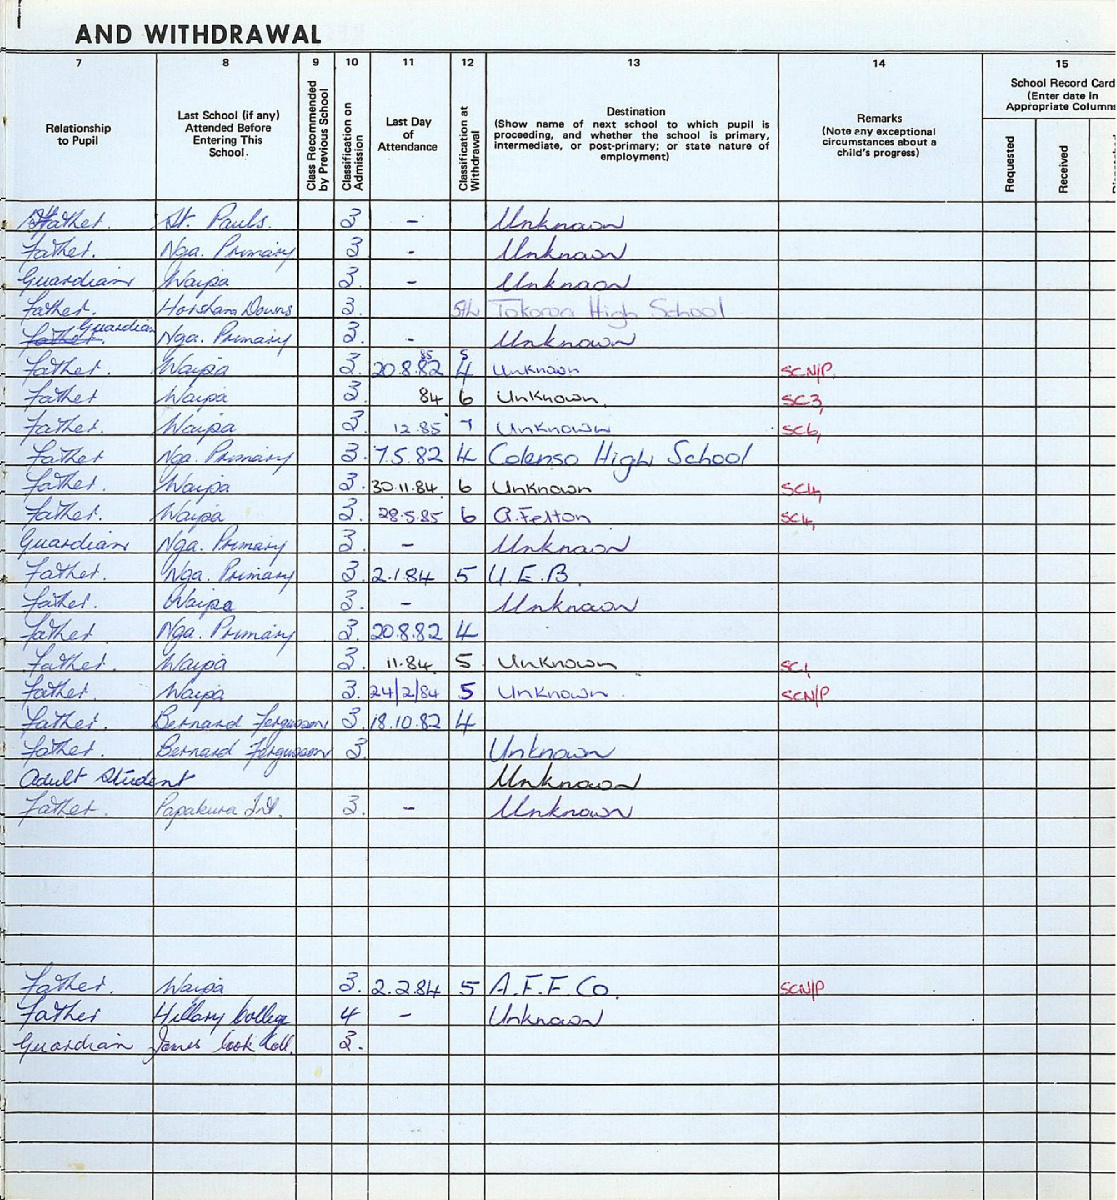 AND WITHDRAWAL
7 8 9 10 11 12 13 14 15
Relationship to Pupil
Last School (if any) Attended Before Entering This School.
Class Recommended by Previous School
Classification on Admission
Last Day of Attendance
Classification at Withdrawal
Destination
(Show name of next school to which pupil is proceeding, and whether the school is primary, intermediate, or post-primary; or state nature of employment)
Remarks
(Note any exceptional circumstances about a child's progress)
School Record Card
(Enter date in Appropriate Column
Requested
Received
Father. St. Pauls. 3 - Unknown
Father. Nga. Primary 3 - Unknown
Guardian Waipa 3. - Unknown
Father. Horsham Downs 3. 5th Tokoroa High School
Father. Guardian Nga. Primary 3. - Unknown
Father. Waipa 3. 20.8.82 85 4 5 Unknown SCN/P
Father Waipa 3. 84 6 Unknown. SC3,
Father. Waipa 3 12.85 7 Unknown SC6,
Father Nga. Primary 3. 7.5.82 4 Colenso High School
Father. Waipa 3. 30.11.84 6 Unknown SC4,
Father. Waipa 3. 28.5.85 6 A.Felton SC4,
Guardian Nga. Primary 3. - Unknown
Father. Nga. Primary 3. 2.1.84 5 U.E.B.
Father. Waipa 3. - Unknown
Father Nga. Primary 3. 20.8.82 4
Father. Waipa 3. 11.84 5 Unknown SC1
Father. Waipa 3. 24/2/84 5 Unknown. SCN/P
Father. Bernard Fergusson 3. 18.10.82 4
Father. Bernard Fergusson 3. Unknown
Adult Student Unknown
Father Papakura Int. 3. - Unknown
Father. Waipa 3. 2.2.84 5 A.F.F.Co. SCN/P
Father Hillary College 4 - Unknown
Guardian James Cook Coll. 3.